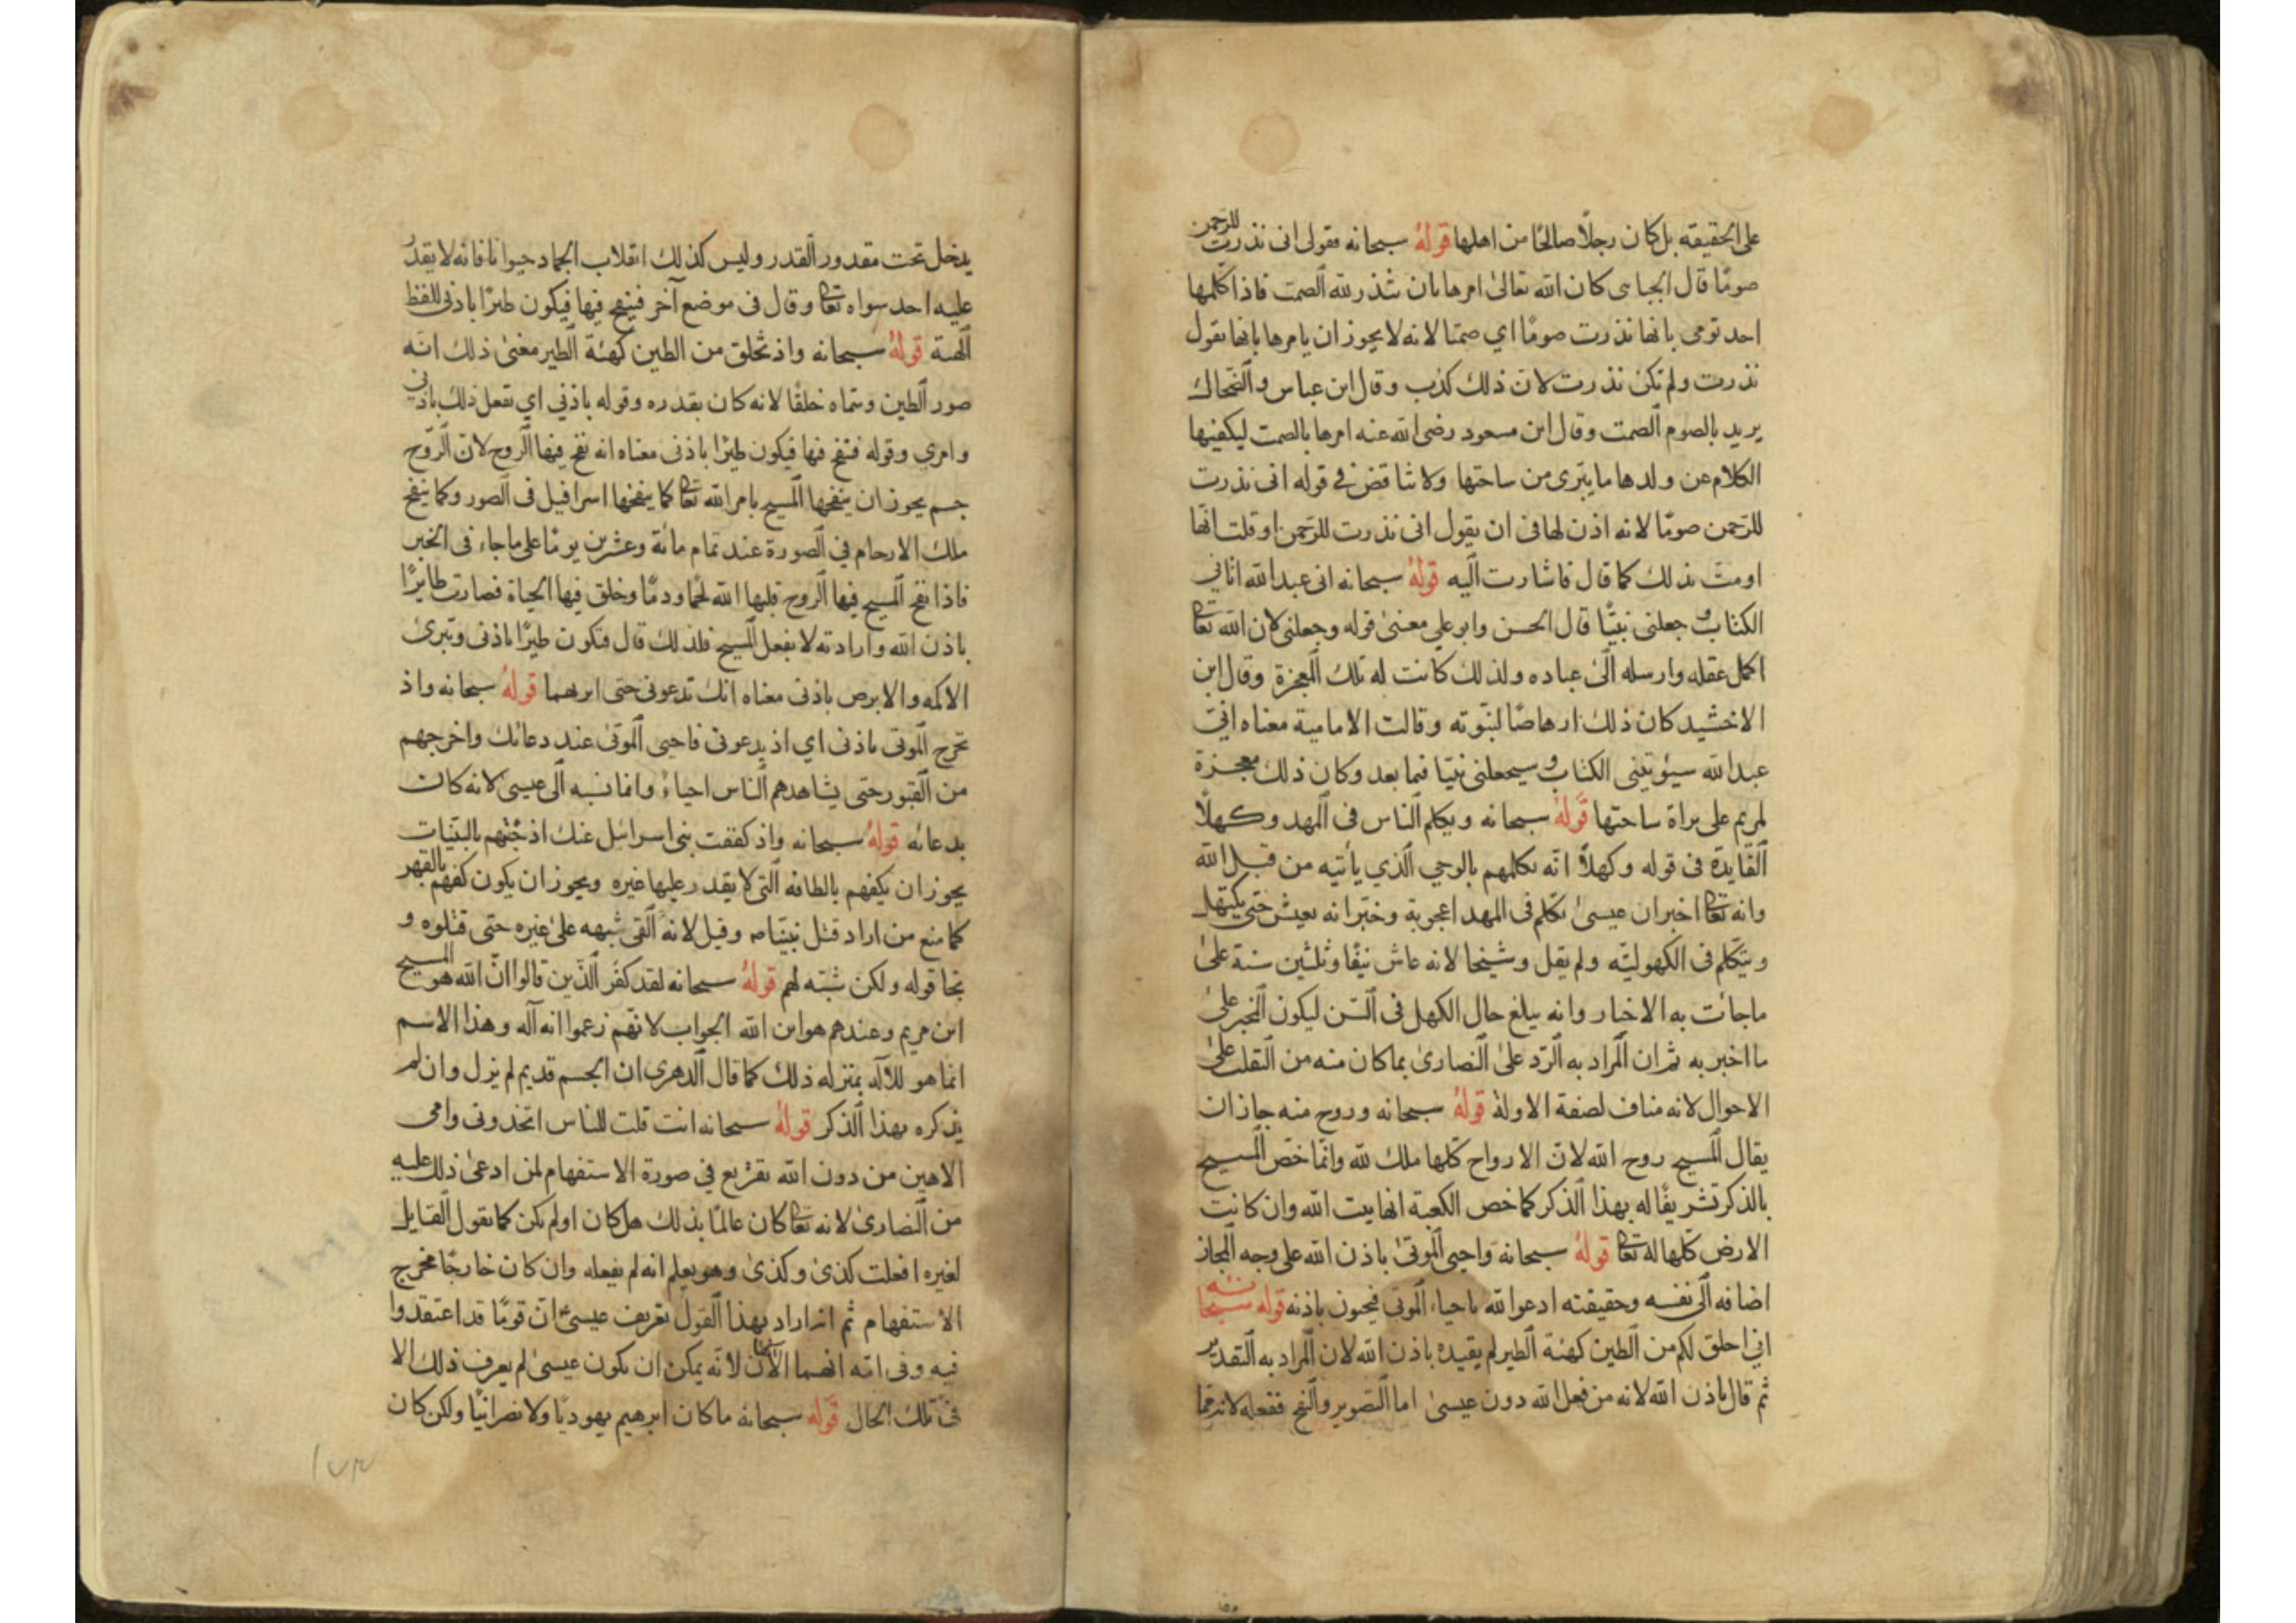 على الحقيقة بل كان رجلًا صالحًا من اهلها قوله سبحانه فقولى انى نذرت للرحمن
صومًا قال الجبائى كان الله تعالى امرها بان تنذر لله الصمت فاذا كلمها
احد تومى بانها نذرت صومًا اي صمتا لانه لا يجوز ان يامرها بانها تقول
نذرت ولم تكن نذرت لان ذلك كذب وقال ابن عباس والضحاك
يريد بالصوم الصمت وقال ابن مسعود رضى الله عنه امرها بالصمت ليكفيها
الكلام عن ولدها ما يبرى من ساحتها ولا تناقض في قوله انى نذرت
للرحمن صومًا لانه اذن لها فى ان يقول انى نذرت للرحمن او قلت انها
اومت بذلك كما قال فاشارت اليه قوله سبحانه انى عبد الله اتاني
الكتاب وجعلنى نبيًا قال الحسن وابو علي معنى قوله وجعلنى لان الله تعا
اكمل عقله وارسله الى عباده ولذلك كانت له تلك المعجزة وقال ابن
الاخشيد كان ذلك ارهاصًا لنبوته وقالت الامامية معناه انى
عبد الله سيؤتينى الكتاب وسيجعلنى نبيًا فيما بعد وكان ذلك معجزة
لمريم على براة ساحتها قوله سبحانه ويكلم الناس فى المهد وكهلًا
الفايدة فى قوله وكهلًا انه يكلمهم بالوحي الذي يأتيه من قبل الله
وانه تعا اخبر ان عيسى تكلم فى المهد اعجوبة وخبر انه يعيش حتى يكتهل
ويتكلم فى الكهولية ولم يقل وشيخا لانه عاش نيفًا وثلثين سنة على
ما جائت به الاخبار وانه يبلغ حال الكهل فى السن ليكون المخبر على
ما اخبر به ثم ان المراد به الرد على النصارى بما كان منه من التقلب على
الاحوال لانه مناف لصفة الاولة قوله سبحانه وروح منه جاز ان
يقال المسيح روح الله لان الارواح كلها ملك لله وانما خص المسيح
بالذكر تشريفًا له بهذا الذكر كما خص الكعبة انها بيت الله وان كانت
الارض كلها له تعا قوله سبحانه واحيى الموتى باذن الله على وجه المجاز
اضافه الى نفسه وحقيقته ادعو الله باحياء الموتى فيحيون باذنه قوله سبحانه
اني اخلق لكم من الطين كهئة الطير لم يقيده باذن الله لان المراد به التقدير
ثم قال باذن الله لانه من فعل الله دون عيسى اما التصوير والنفخ ففعله لانه مما
يدخل تحت مقدور القدر وليس كذلك انقلاب الجماد حيوانا فانه لا يقدر
عليه احد سواه تعا وقال فى موضع آخر فينفخ فيها فيكون طيرًا باذنى للفظ
الهئة قوله سبحانه واذ تخلق من الطين كهئة الطير معنى ذلك انه
صور الطين وسماه خلقًا لانه كان بقدره وقوله باذني اي تفعل ذلك باذنى
وامري وقوله فتنفخ فيها فيكون طيرًا باذنى معناه انه نفخ فيها الروح لان الروح
جسم يجوز ان ينفخها المسيح بامر الله تعا كما ينفخها اسرافيل فى الصور وكما ينفخ
ملك الارحام في الصورة عند تمام مائة وعشرين يومًا على ما جاء فى الخبر
فاذا نفخ المسيح فيها الروح قلبها الله لحمًا ودمًا وخلق فيها الحياة فصارت طايرًا
باذن الله وارادته لا بفعل المسيح فلذلك قال فتكون طيرًا باذنى وتبرئ
الاكمه والابرص باذنى معناه انك تدعونى حتى ابرئهما قوله سبحانه واذ
تخرج الموتى باذنى اي اذ يدعونى فاحيى الموتى عند دعائك واخرجهم
من القبور حتى يشاهدهم الناس احياء وانما نسبه الى عيسى لانه كان
بدعائه قوله سبحانه واذ كففت بنى اسرائيل عنك اذ جئتهم بالبينات
يجوز ان يكفهم بالطافه التى لا يقدر عليها غيره ويجوز ان يكون كفهم بالقهر
كما منع من اراد قتل نبينا ص وقيل لانه القى شبهه على غيره حتى قتلوه و
نجا قوله ولكن شبه لهم قوله سبحانه لقد كفر الذين قالوا ان الله هو المسيح
ابن مريم وعندهم هو ابن الله الجواب لانهم زعموا انه آله وهذا الاسم
انما هو للآله بمنزلة ذلك كما قال الدهرى ان الجسم قديم لم يزل وان لم
يذكره بهذا الذكر قوله سبحانه انت قلت للناس اتخذونى وامى
الاهين من دون الله تقريع في صورة الاستفهام لمن ادعى ذلك عليه
من النصارى لانه تعا كان عالمًا بذلك هل كان او لم يكن كما يقول القايل
لغيره افعلت كذى وكذى وهو يعلم انه لم يفعله وان كان خارجًا مخرج
الاستفهام ثم انه اراد بهذا القول تعريف عيسى ان قومًا قد اعتقدوا
فيه وفى امه انهما الاهان لانه يمكن ان يكون عيسى لم يعرف ذلك الا
فى تلك الحال قوله سبحانه ما كان ابرهيم يهوديًا ولا نصرانيًا ولكن كان